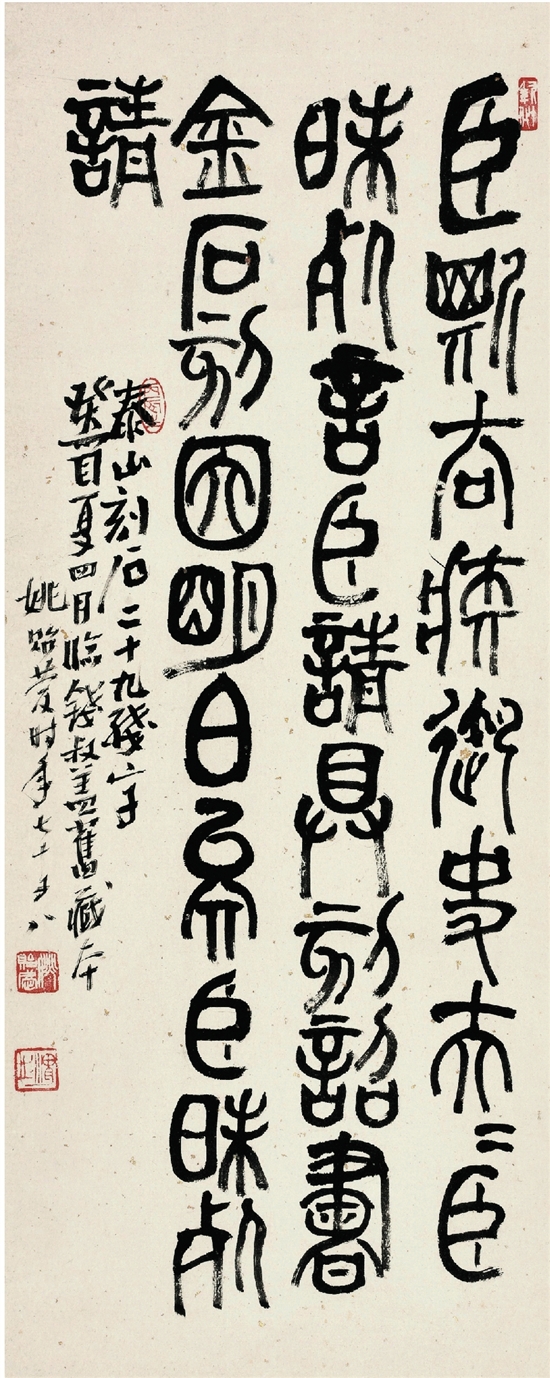 臣斯去疾御史夫=臣
昧死言臣請具刻詔書
金石刻因明白矣臣昧死
請
泰山刻石二十九残字
癸酉夏四月臨錢叔蓋舊藏本
姚貽慶时年七十又八